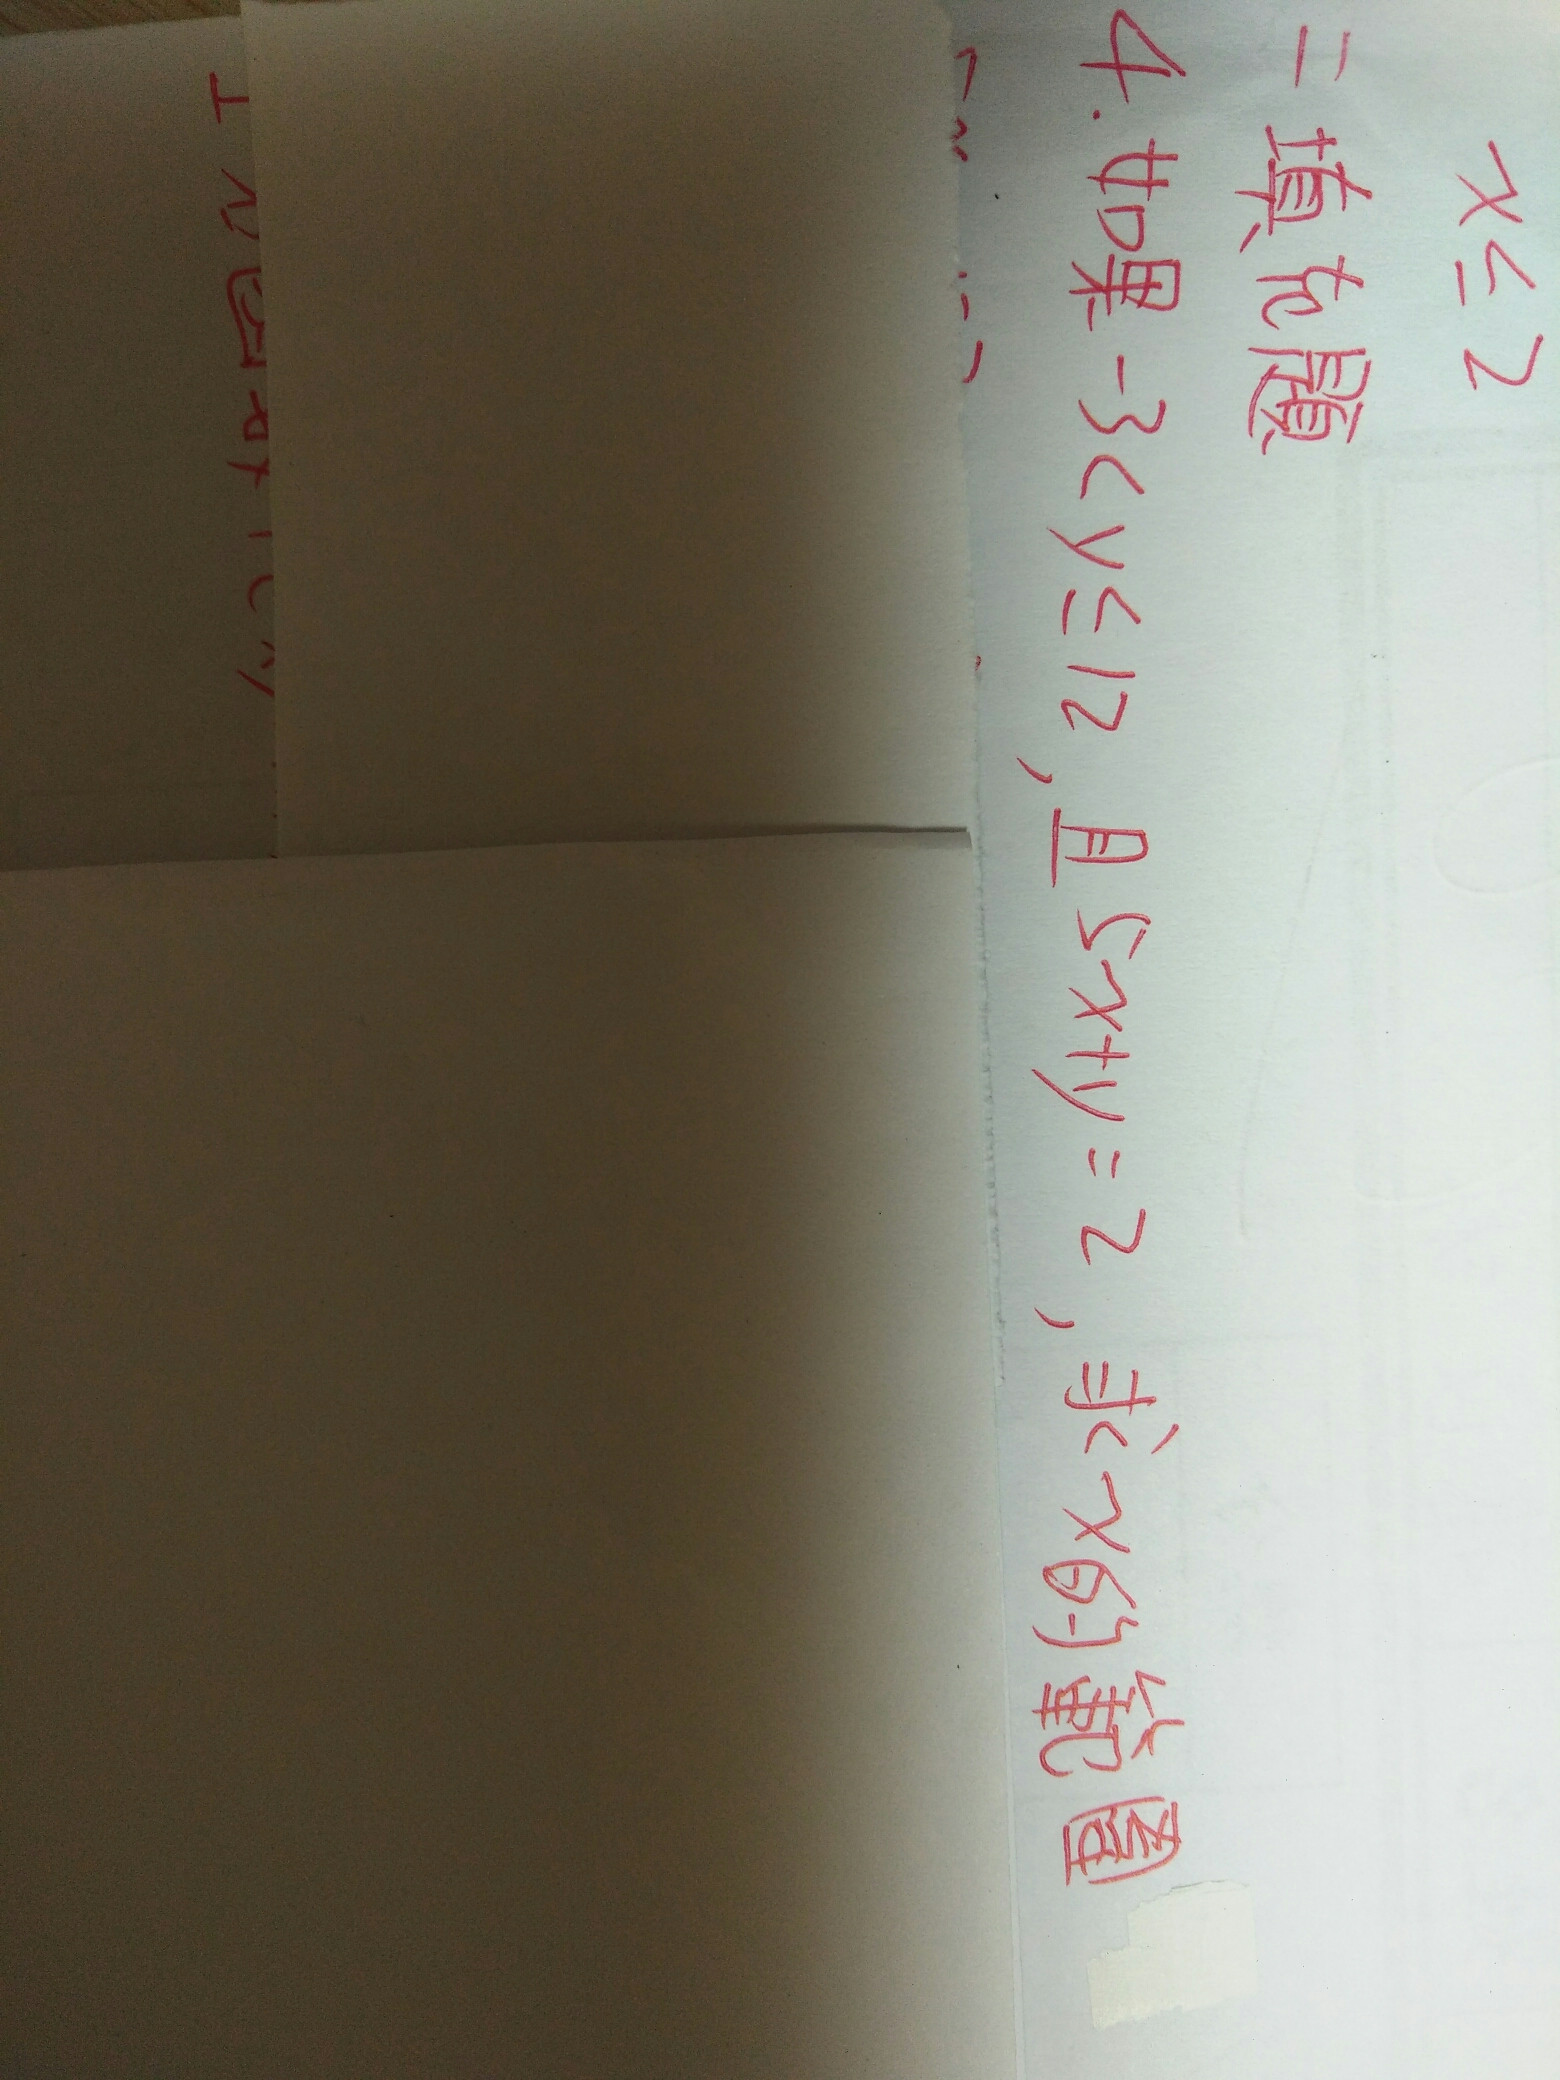 x≤2
二填充題
4.如果-3<y≤12,且5x+y=2,求x的範圍